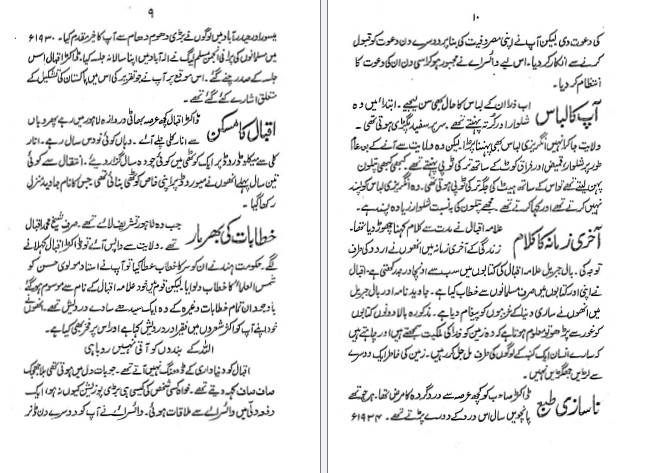 ۹
میسور اور حیدر آباد میں لوگوں نے بڑی دھوم دھام سے آپ کا خیر مقدم کیا۔ ۱۹۳۰ء
میں مسلمانوں کی بڑی انجمن مسلم لیگ نے الہ آباد میں اپنا سالانہ جلسہ کیا۔ ڈاکٹر اقبال اس
جلسہ کے صدر چنے گئے۔ اس موقع پر آپ نے جو تقریر کی اس میں پاکستان کی تشکیل کے
متعلق اشارے کئے گئے تھے۔
اقبال کا مسکن
ڈاکٹر اقبال کچھ عرصہ بھاٹی دروازہ لاہور میں رہے پھر وہاں
سے انار کلی چلے آئے۔ وہاں کوئی نو دس سال رہے۔ انار
کلی سے میکلوڈ روڈ پر ایک کوٹھی میں کوئی چودہ سال گزار دیئے۔ انتقال سے کوئی
تین سال پہلے انھوں نے میو روڈ پر اپنی خاص کوٹھی بنائی تھی جس کا نام جاوید منزل
رکھا گیا۔
خطابات کی بھرمار
جب وہ لاہور تشریف لائے تھے۔ صرف شیخ محمد اقبال
تھے۔ ولایت سے واپس آئے تو ڈاکٹر اقبال کہلانے
لگے۔ حکومت ہند نے ان کو سر کا خطاب عطا کیا تو آپ نے استاد مولوی حسن کو
شمس العلما کا خطاب دلوایا۔ لیکن قوم میں خود علامہ اقبال کے نام سے موسوم ہو گئے
باوجود ان تمام خطابات وغیرہ کے وہ ایک سیدھے سادے درویش تھے۔ انھوں نے
خود اپنے آپ کو اکثر شعروں میں فقیر اور درویش کہا ہے اور اس پر فخر بھی کیا ہے۔
اللہ کے بندوں کو آتی نہیں روباہی
اقبال کو دنیاداری کے ڈھنگ نہیں آتے تھے۔ جو بات دل میں ہوتی تھی بلا جھجک
صاف صاف کہہ دیتے تھے۔ خواہ کسی شخص کی کیسی ہی بڑی پوزیشن کیوں نہ ہو، ایک
دفعہ دلی میں وائسرائے سے ملاقات ہوئی۔ وائسرائے نے آپ کو دوسرے دن ڈنر
۱۰
کی دعوت دی لیکن آپ نے اپنی مصروفیت کی بنا پر دوسرے دن دعوت کو قبول
کرنے سے انکار کر دیا۔ اس لیے وائسرائے نے مجبور ہو کر اسی دن ان کی دعوت کا
انتظام کر دیا۔
آپ کا لباس
اب ذرا ان کے لباس کا حال بھی سن لیجیے۔ ابتدا میں وہ
شلوار اور کرتہ پہنتے تھے۔ سر پر سفید پگڑی ہوتی تھی۔
ولایت جا کر انہیں انگریزی لباس بھی پہننا پڑا لیکن وہ ولایت سے آنے کے بعد عام
طور پر شلوار، قمیض اور فراق کوٹ کے ساتھ ترکی ٹوپی پہنتے تھے۔ کبھی کبھی پتلون
پہن لیتے تھے تو اس کے ساتھ ہیٹ کی جگہ ترکی ٹوپی ہوتی تھی۔ وہ انگریزی لباس کو پسند
نہیں کرتے تھے اور کہا کرتے تھے۔ مجھے پتلون کی بنسبت شلوار زیادہ پسند ہے۔
آخری زمانہ کا کلام
علامہ اقبال نے مدت سے کلام کہنا چھوڑ دیا تھا۔
زندگی کے آخری زمانہ میں انھوں نے اردو کی طرف
توجہ کی۔ بال جبریل علامہ اقبال کی کتابوں میں سب سے اونچا درجہ رکھتی ہے۔ اقبال
نے اپنی اور کتابوں میں صرف مسلمانوں سے خطاب کیا ہے۔ جاوید نامہ اور بال جبریل
میں انھوں نے ساری دنیا کے غریبوں کو پیغام دیا ہے۔ مذکورہ بالا دونوں کتابوں
کو غور سے پڑھو تو معلوم ہوتا ہے کہ وہ زمین کو خدا کی ملکیت سمجھتے ہیں اور چاہتے ہیں
کہ سارے انسان ایک کنبہ کے لوگوں کی طرف مل جل کر رہیں۔ زمین کی خاطر ایک دوسرے
سے لڑیں جھگڑیں نہیں۔
ناسازی طبع
ڈاکٹر صاحب کو کچھ عرصہ سے درد گردہ کا مرض تھا۔ ہر چوتھے
پانچویں سال اس درد کے دورے پڑتے تھے۔ ۱۹۳۴ء